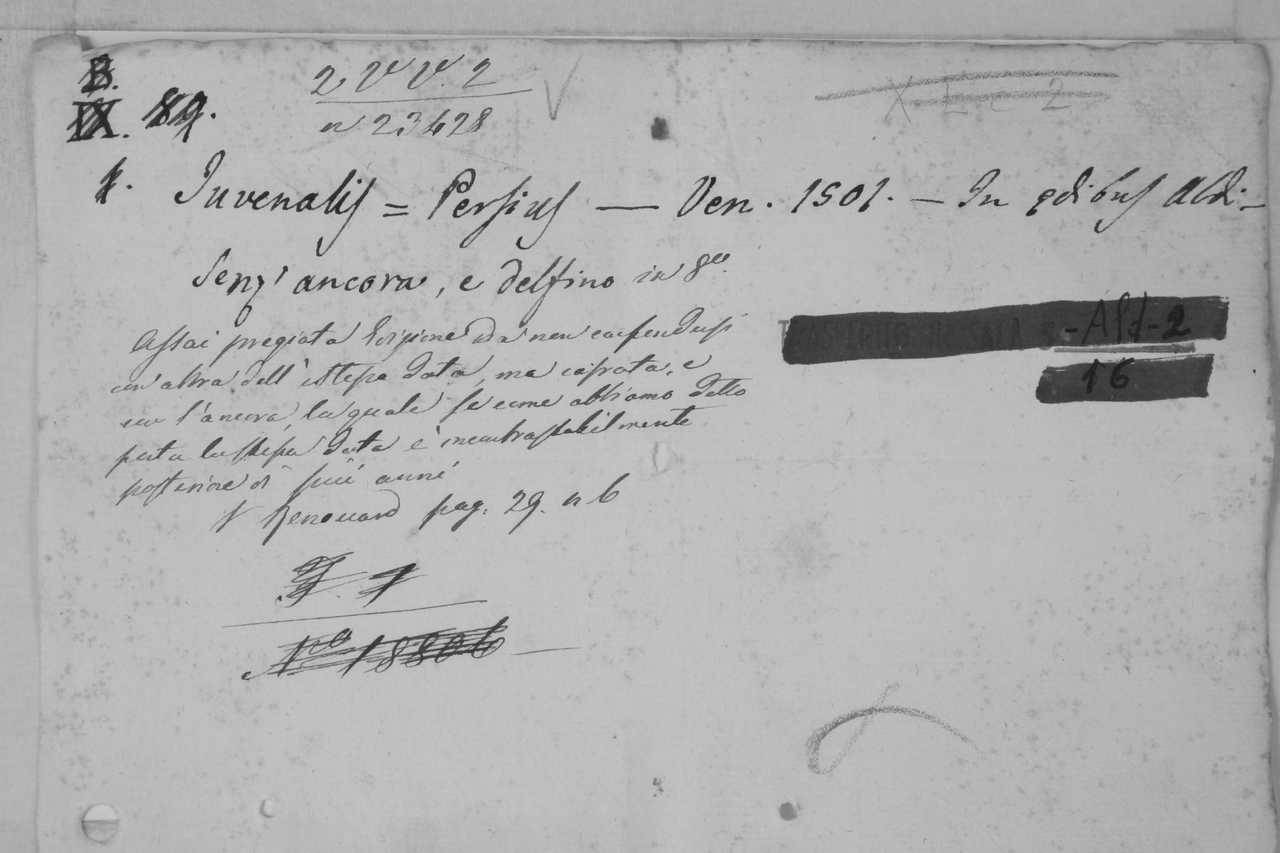 B.
IX. 89.
2 V V. 2
n 23428
X L c 2
Juvenalis = Persius — Ven. 1501. — In ędibus Aldi —
senz' ancora, e delfino in 8.vo
Assai pregiata edizione da non confondersi
con altra dell' istessa data, ma copiata, e
con l'ancora, la quale se come abbiamo detto
porta la stessa data è incontrastabilmente
posteriore di più anni
V Renouard pag. 29. n 6
TRASFERITO IN SALA - Ald - 2
16
1
Nro 18806